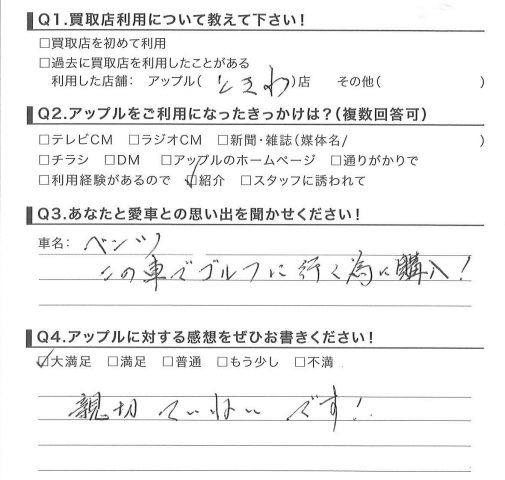 Q1.買取店利用について教えて下さい！
□買取店を初めて利用
□過去に買取店を利用したことがある
利用した店舗： アップル（ ときわ ）店 その他（ ）
Q2.アップルをご利用になったきっかけは？（複数回答可）
□テレビCM □ラジオCM □新聞・雑誌（媒体名/ ）
□チラシ □DM □アップルのホームページ □通りがかりで
□利用経験があるので ☑紹介 □スタッフに誘われて
Q3.あなたと愛車との思い出を聞かせください！
車名： ベンツ
この車でゴルフに行く為に購入！
Q4.アップルに対する感想をぜひお書きください！
☑大満足 □満足 □普通 □もう少し □不満
親切 ていねい です！